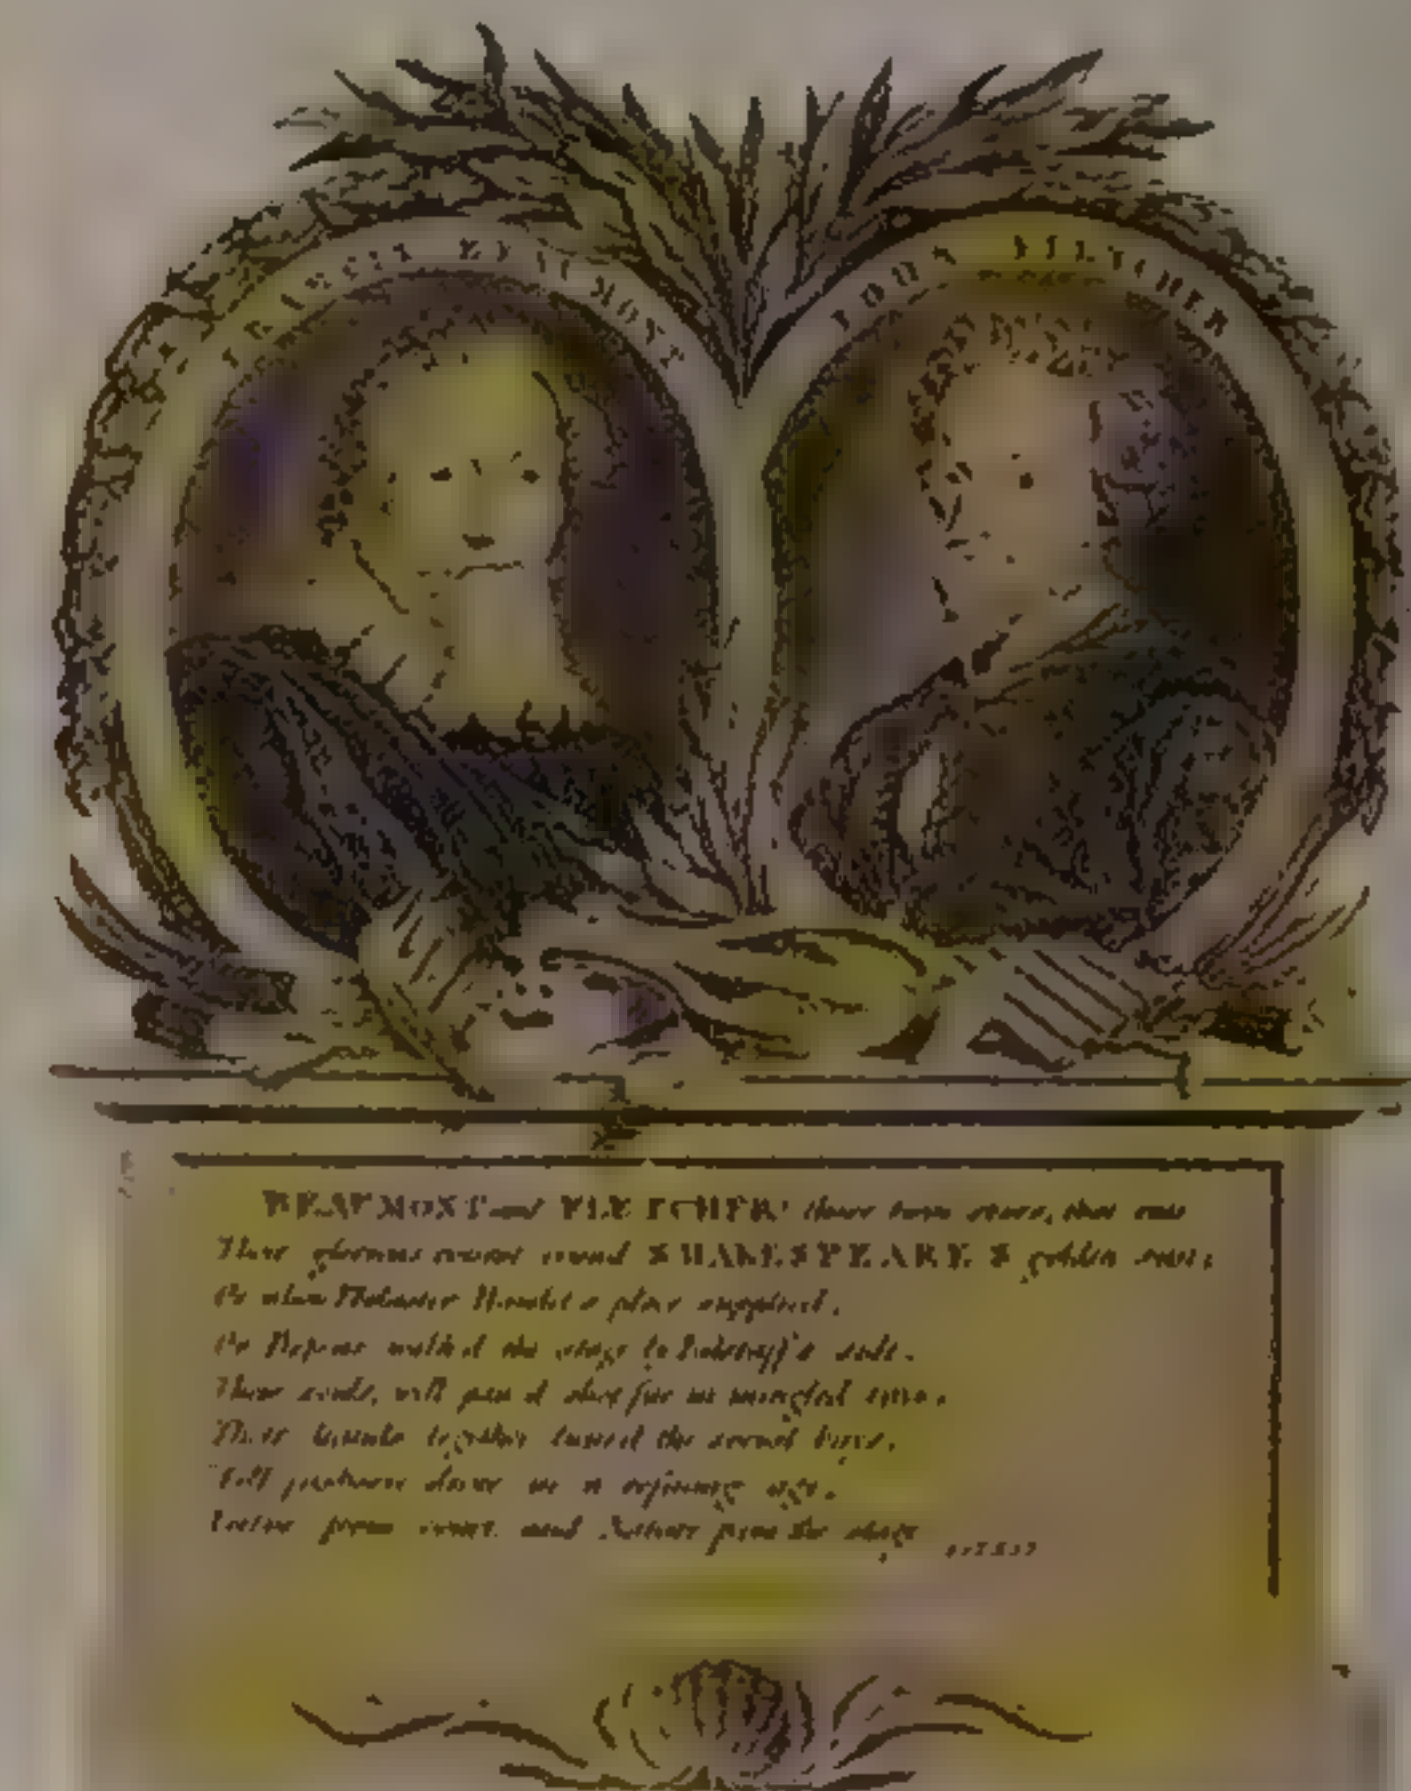 FRANCIS BEAUMONT
JOHN FLETCHER
BEAUMONT and FLETCHER! those twin stars, that run
Their glorious course round SHAKESPEARE'S golden sun;
Or when Philaster Hamlet's place supplied,
Or Bessus walked the stage by Falstaff's side.
Their souls, well pair'd, shot fire in mingled rays,
Their hands together twined the social bays,
Till fashions drove in a refining age,
Virtue from court, and Nature from the stage